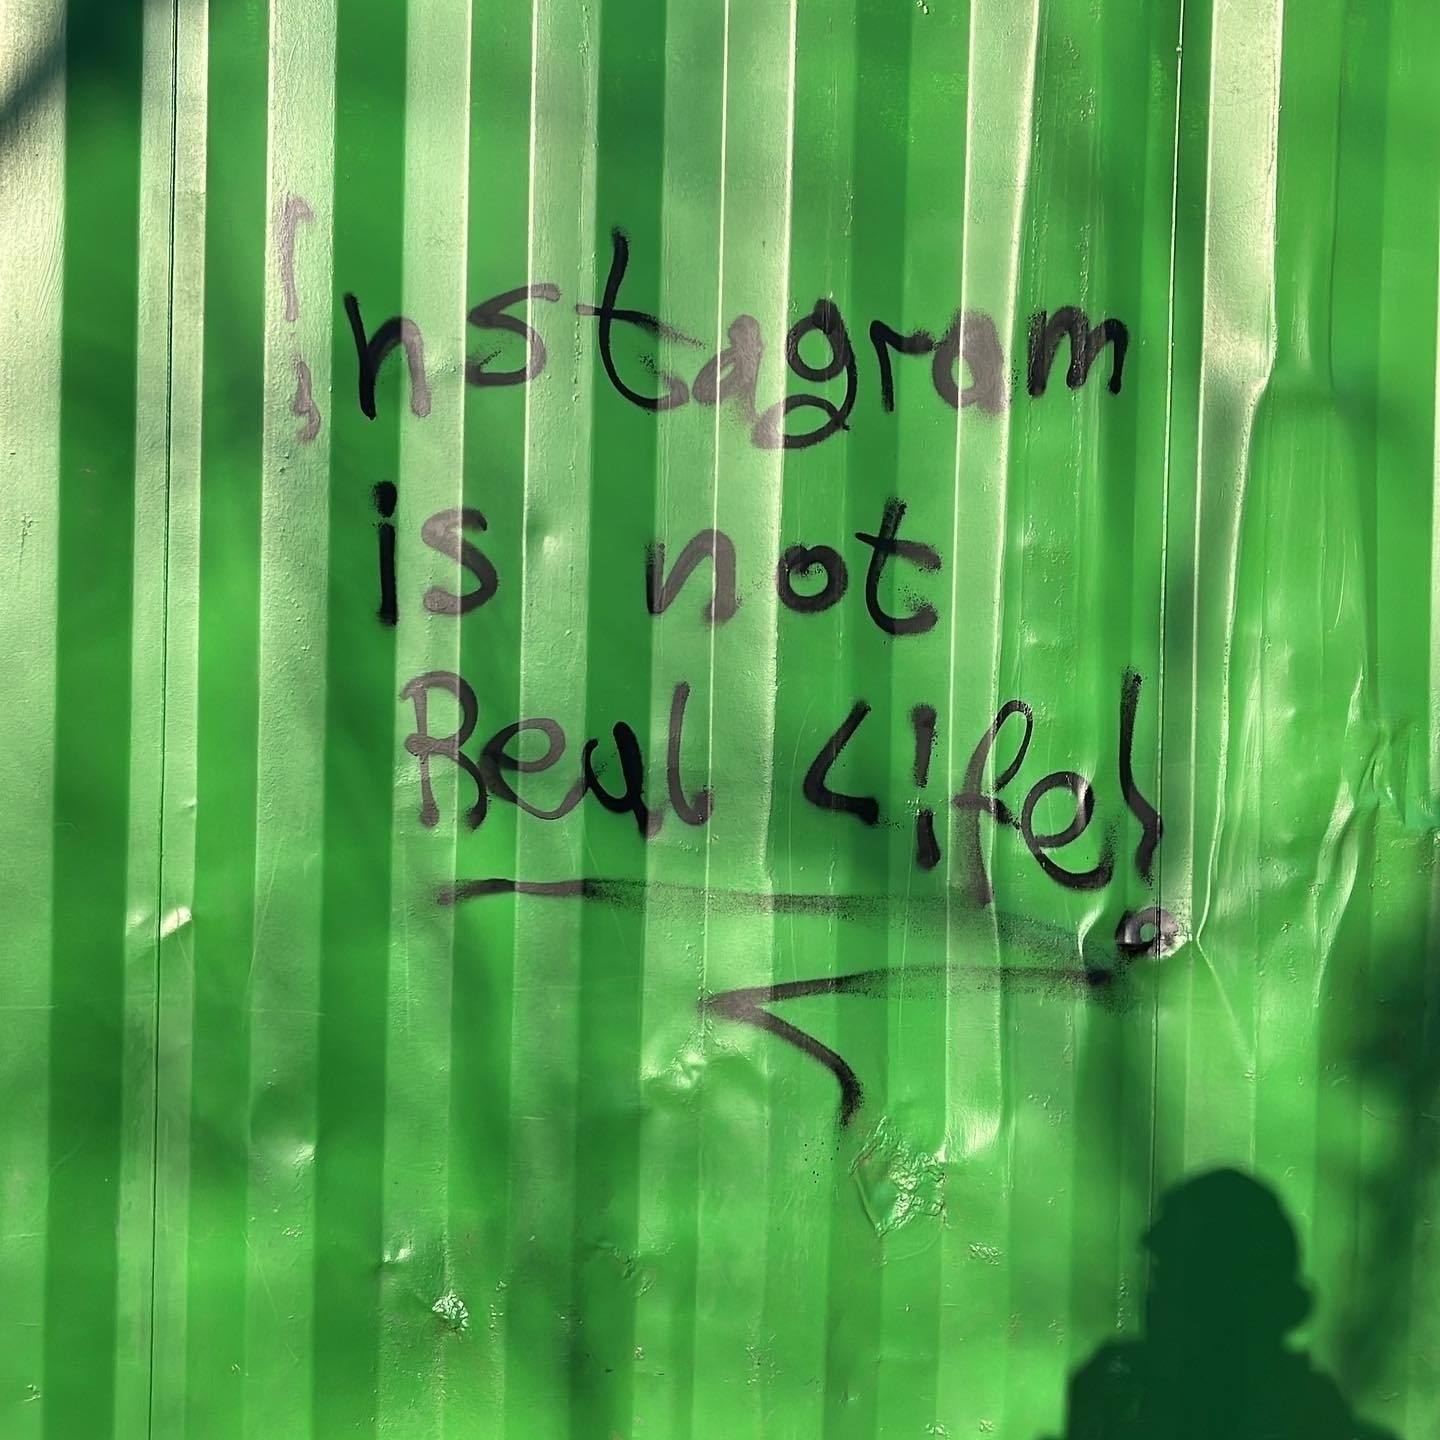 Instagram
is not
Real Life!